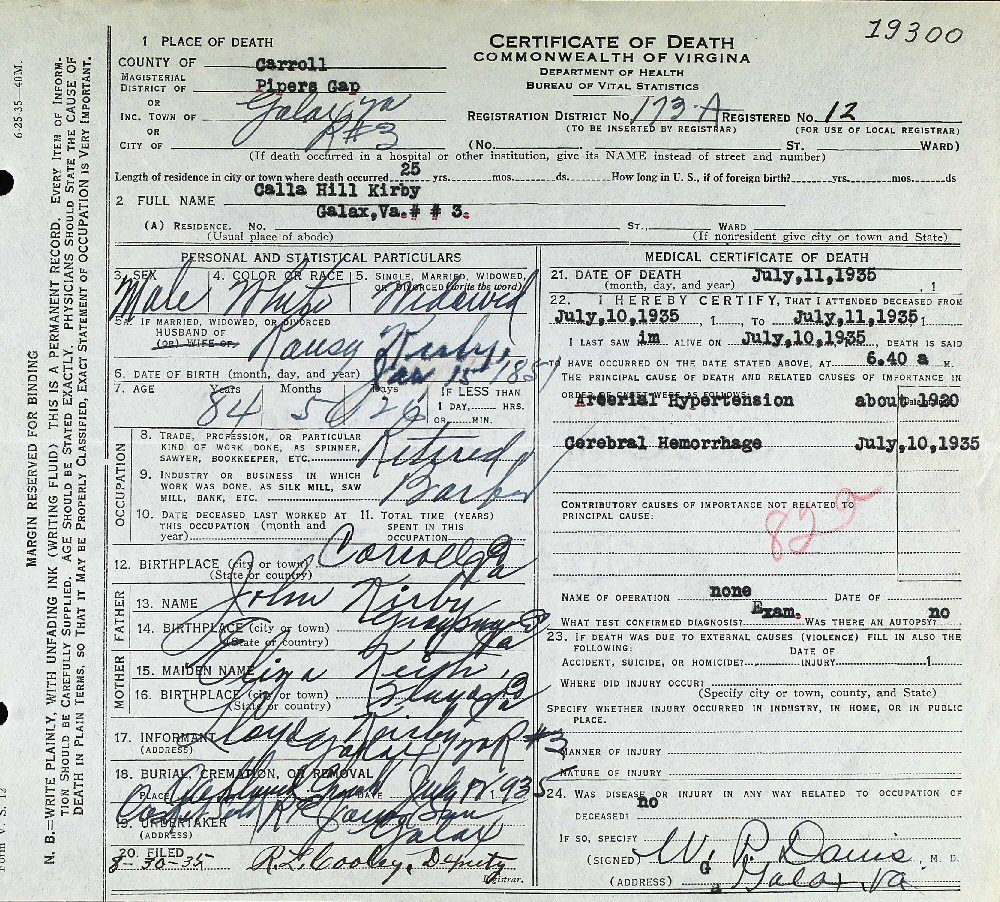 19300
1 PLACE OF DEATH
COUNTY OF Carroll
MAGISTERIAL DISTRICT OF Pipers Gap
OR
INC. TOWN OF Galax Va
OR R#3
CITY OF
CERTIFICATE OF DEATH
COMMONWEALTH OF VIRGINIA
DEPARTMENT OF HEALTH
BUREAU OF VITAL STATISTICS
REGISTRATION DISTRICT NO. 173-A REGISTERED NO. 12
(TO BE INSERTED BY REGISTRAR) (FOR USE OF LOCAL REGISTRAR)
(No. ST. WARD)
(If death occurred in a hospital or other institution, give its NAME instead of street and number)
Length of residence in city or town where death occurred 25 yrs. mos. ds. How long in U. S., if of foreign birth? yrs. mos. ds
2 FULL NAME Calla Hill Kirby
Galax,Va.# # 3.
(A) RESIDENCE. No. ST., WARD
(Usual place of abode) (If nonresident give city or town and State)
PERSONAL AND STATISTICAL PARTICULARS
3. SEX 4. COLOR OR RACE 5. SINGLE, MARRIED, WIDOWED, OR DIVORCED (write the word)
Male White Widowed
5A. IF MARRIED, WIDOWED, OR DIVORCED
HUSBAND OF
(OR) WIFE OF Kirby
6. DATE OF BIRTH (month, day, and year) Jan 15th 1851
7. AGE Years Months Days IF LESS THAN
84 5 26 1 DAY, HRS.
OR MIN.
OCCUPATION
8. TRADE, PROFESSION, OR PARTICULAR
KIND OF WORK DONE, AS SPINNER,
SAWYER, BOOKKEEPER, ETC. Retired
9. INDUSTRY OR BUSINESS IN WHICH
WORK WAS DONE, AS SILK MILL, SAW
MILL, BANK, ETC.
10. DATE DECEASED LAST WORKED AT 11. TOTAL TIME (YEARS)
THIS OCCUPATION (month and SPENT IN THIS
year) OCCUPATION
12. BIRTHPLACE (city or town) Carroll Co
(State or country) Va
FATHER
13. NAME John Kirby
14. BIRTHPLACE (city or town) Grayson Co
(State or country) Va
MOTHER
15. MAIDEN NAME Eliza
16. BIRTHPLACE (city or town)
(State or country) Va
17. INFORMANT Kirby
(ADDRESS) Galax Va R#3
18. BURIAL, CREMATION, OR REMOVAL
PLACE DATE July 12 1935
19. UNDERTAKER
(ADDRESS) Galax
20. FILED
8-30-35 R.L. Cooley, Deputy
Registrar.
MEDICAL CERTIFICATE OF DEATH
21. DATE OF DEATH July,11,1935
(month, day, and year) , 1
22. I HEREBY CERTIFY, THAT I ATTENDED DECEASED FROM
July,10,1935, 1 , TO July,11,1935, 1
I LAST SAW im ALIVE ON July,10,1935, DEATH IS SAID
TO HAVE OCCURRED ON THE DATE STATED ABOVE, AT 6.40 a M.
THE PRINCIPAL CAUSE OF DEATH AND RELATED CAUSES OF IMPORTANCE IN
ORDER OF ONSET WERE AS FOLLOWS:
Arterial Hypertension about 1920
Cerebral Hemorrhage July,10,1935
CONTRIBUTORY CAUSES OF IMPORTANCE NOT RELATED TO
PRINCIPAL CAUSE:
82a
NAME OF OPERATION none DATE OF
WHAT TEST CONFIRMED DIAGNOSIS? Exam. WAS THERE AN AUTOPSY? no
23. IF DEATH WAS DUE TO EXTERNAL CAUSES (VIOLENCE) FILL IN ALSO THE
FOLLOWING: DATE OF
ACCIDENT, SUICIDE, OR HOMICIDE? INJURY 1
WHERE DID INJURY OCCUR?
(Specify city or town, county, and State)
SPECIFY WHETHER INJURY OCCURRED IN INDUSTRY, IN HOME, OR IN PUBLIC
PLACE.
MANNER OF INJURY
NATURE OF INJURY
24. WAS DISEASE OR INJURY IN ANY WAY RELATED TO OCCUPATION OF
DECEASED? no
IF SO, SPECIFY
(SIGNED) W. P. Davis, M. D.
(ADDRESS) Galax, Va
6-25-35—40M.
MARGIN RESERVED FOR BINDING
N. B.—WRITE PLAINLY, WITH UNFADING INK (WRITING FLUID) THIS IS A PERMANENT RECORD. EVERY ITEM OF INFORM-
TION SHOULD BE CAREFULLY SUPPLIED. AGE SHOULD BE STATED EXACTLY. PHYSICIANS SHOULD STATE THE CAUSE OF
DEATH IN PLAIN TERMS, SO THAT IT MAY BE PROPERLY CLASSIFIED. EXACT STATEMENT OF OCCUPATION IS VERY IMPORTANT.
Form V. S. 12